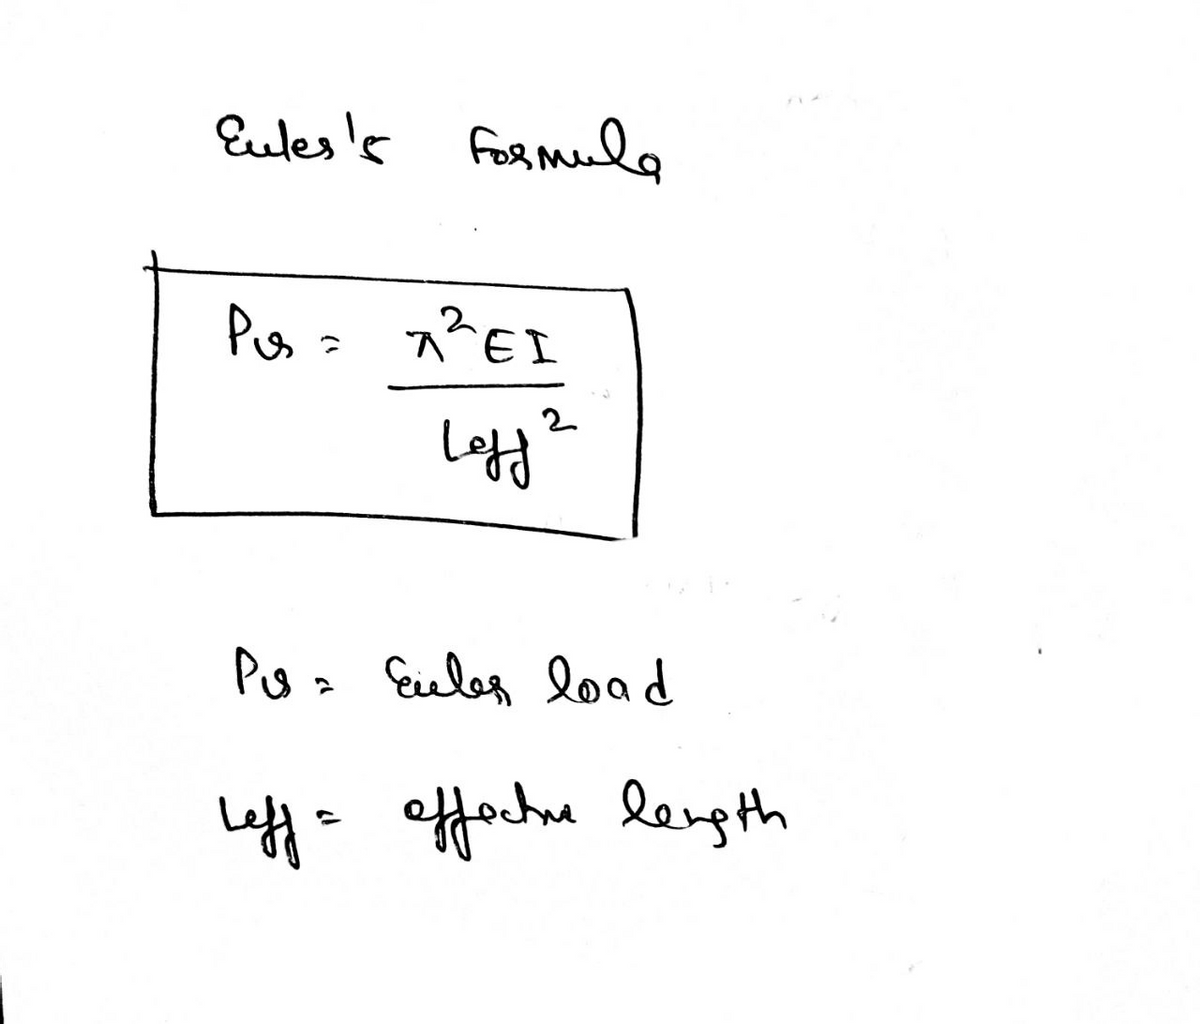 Euler's Formula
Pcr = π²EI
Leff²
Pcr = Euler load
Leff = effective length